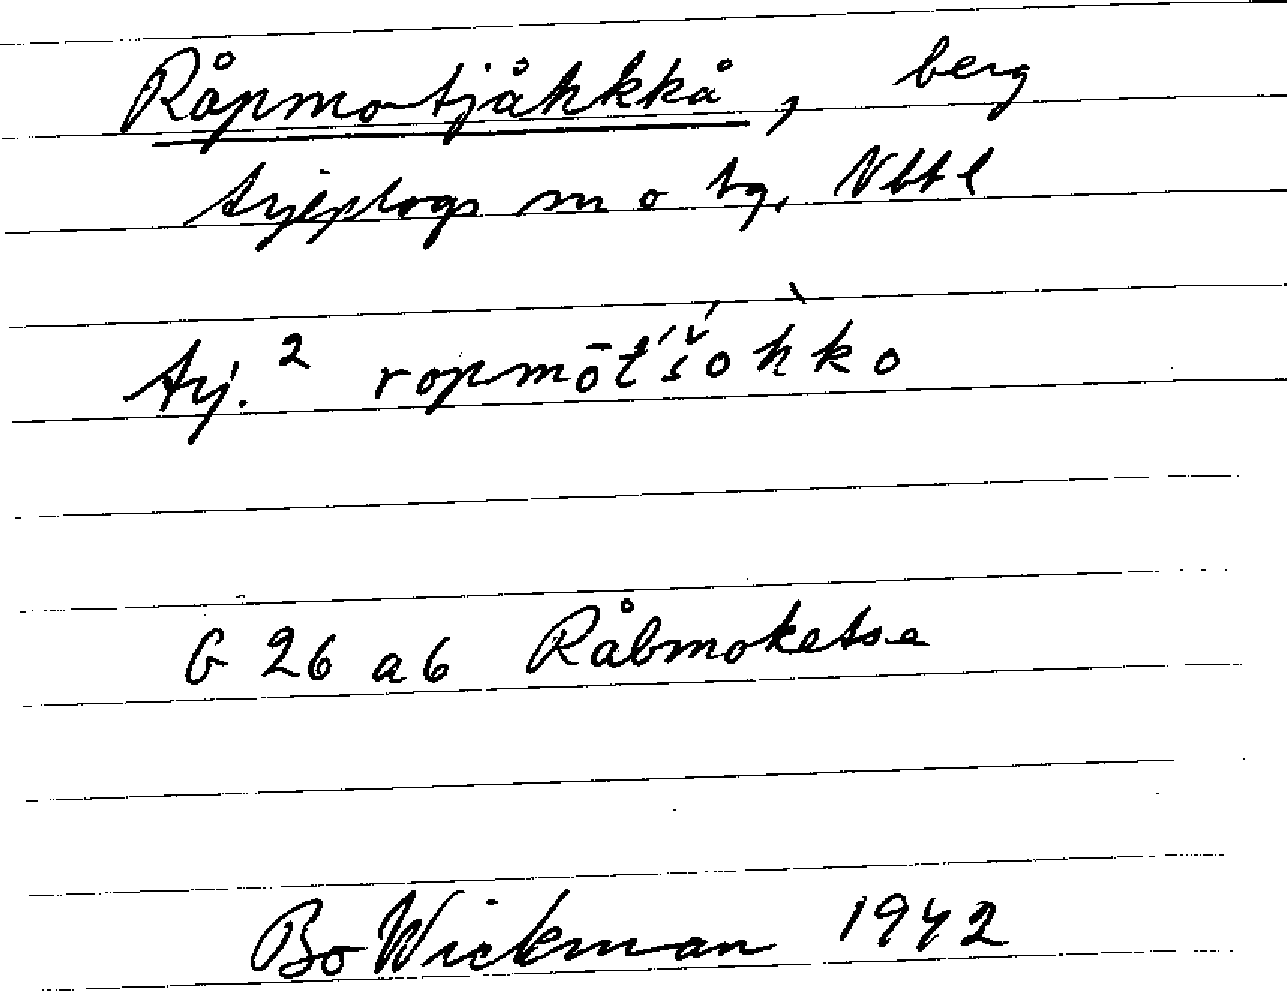 Råpmotjåhkkå, berg
Arjeplogs m o tg, Nbtl
Arj.² ropmō̠t́'š́ohko
G 26 a b Råbmoketse
Bo Wickman 1942